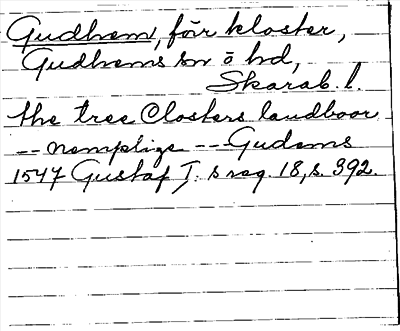 Gudhem, för kloster,
Gudhems sn o hd,
Skarab. l.
the tree Closters landboor
-- nempliga -- Gudems
1547 Gustaf I:s reg. 18, s. 392.